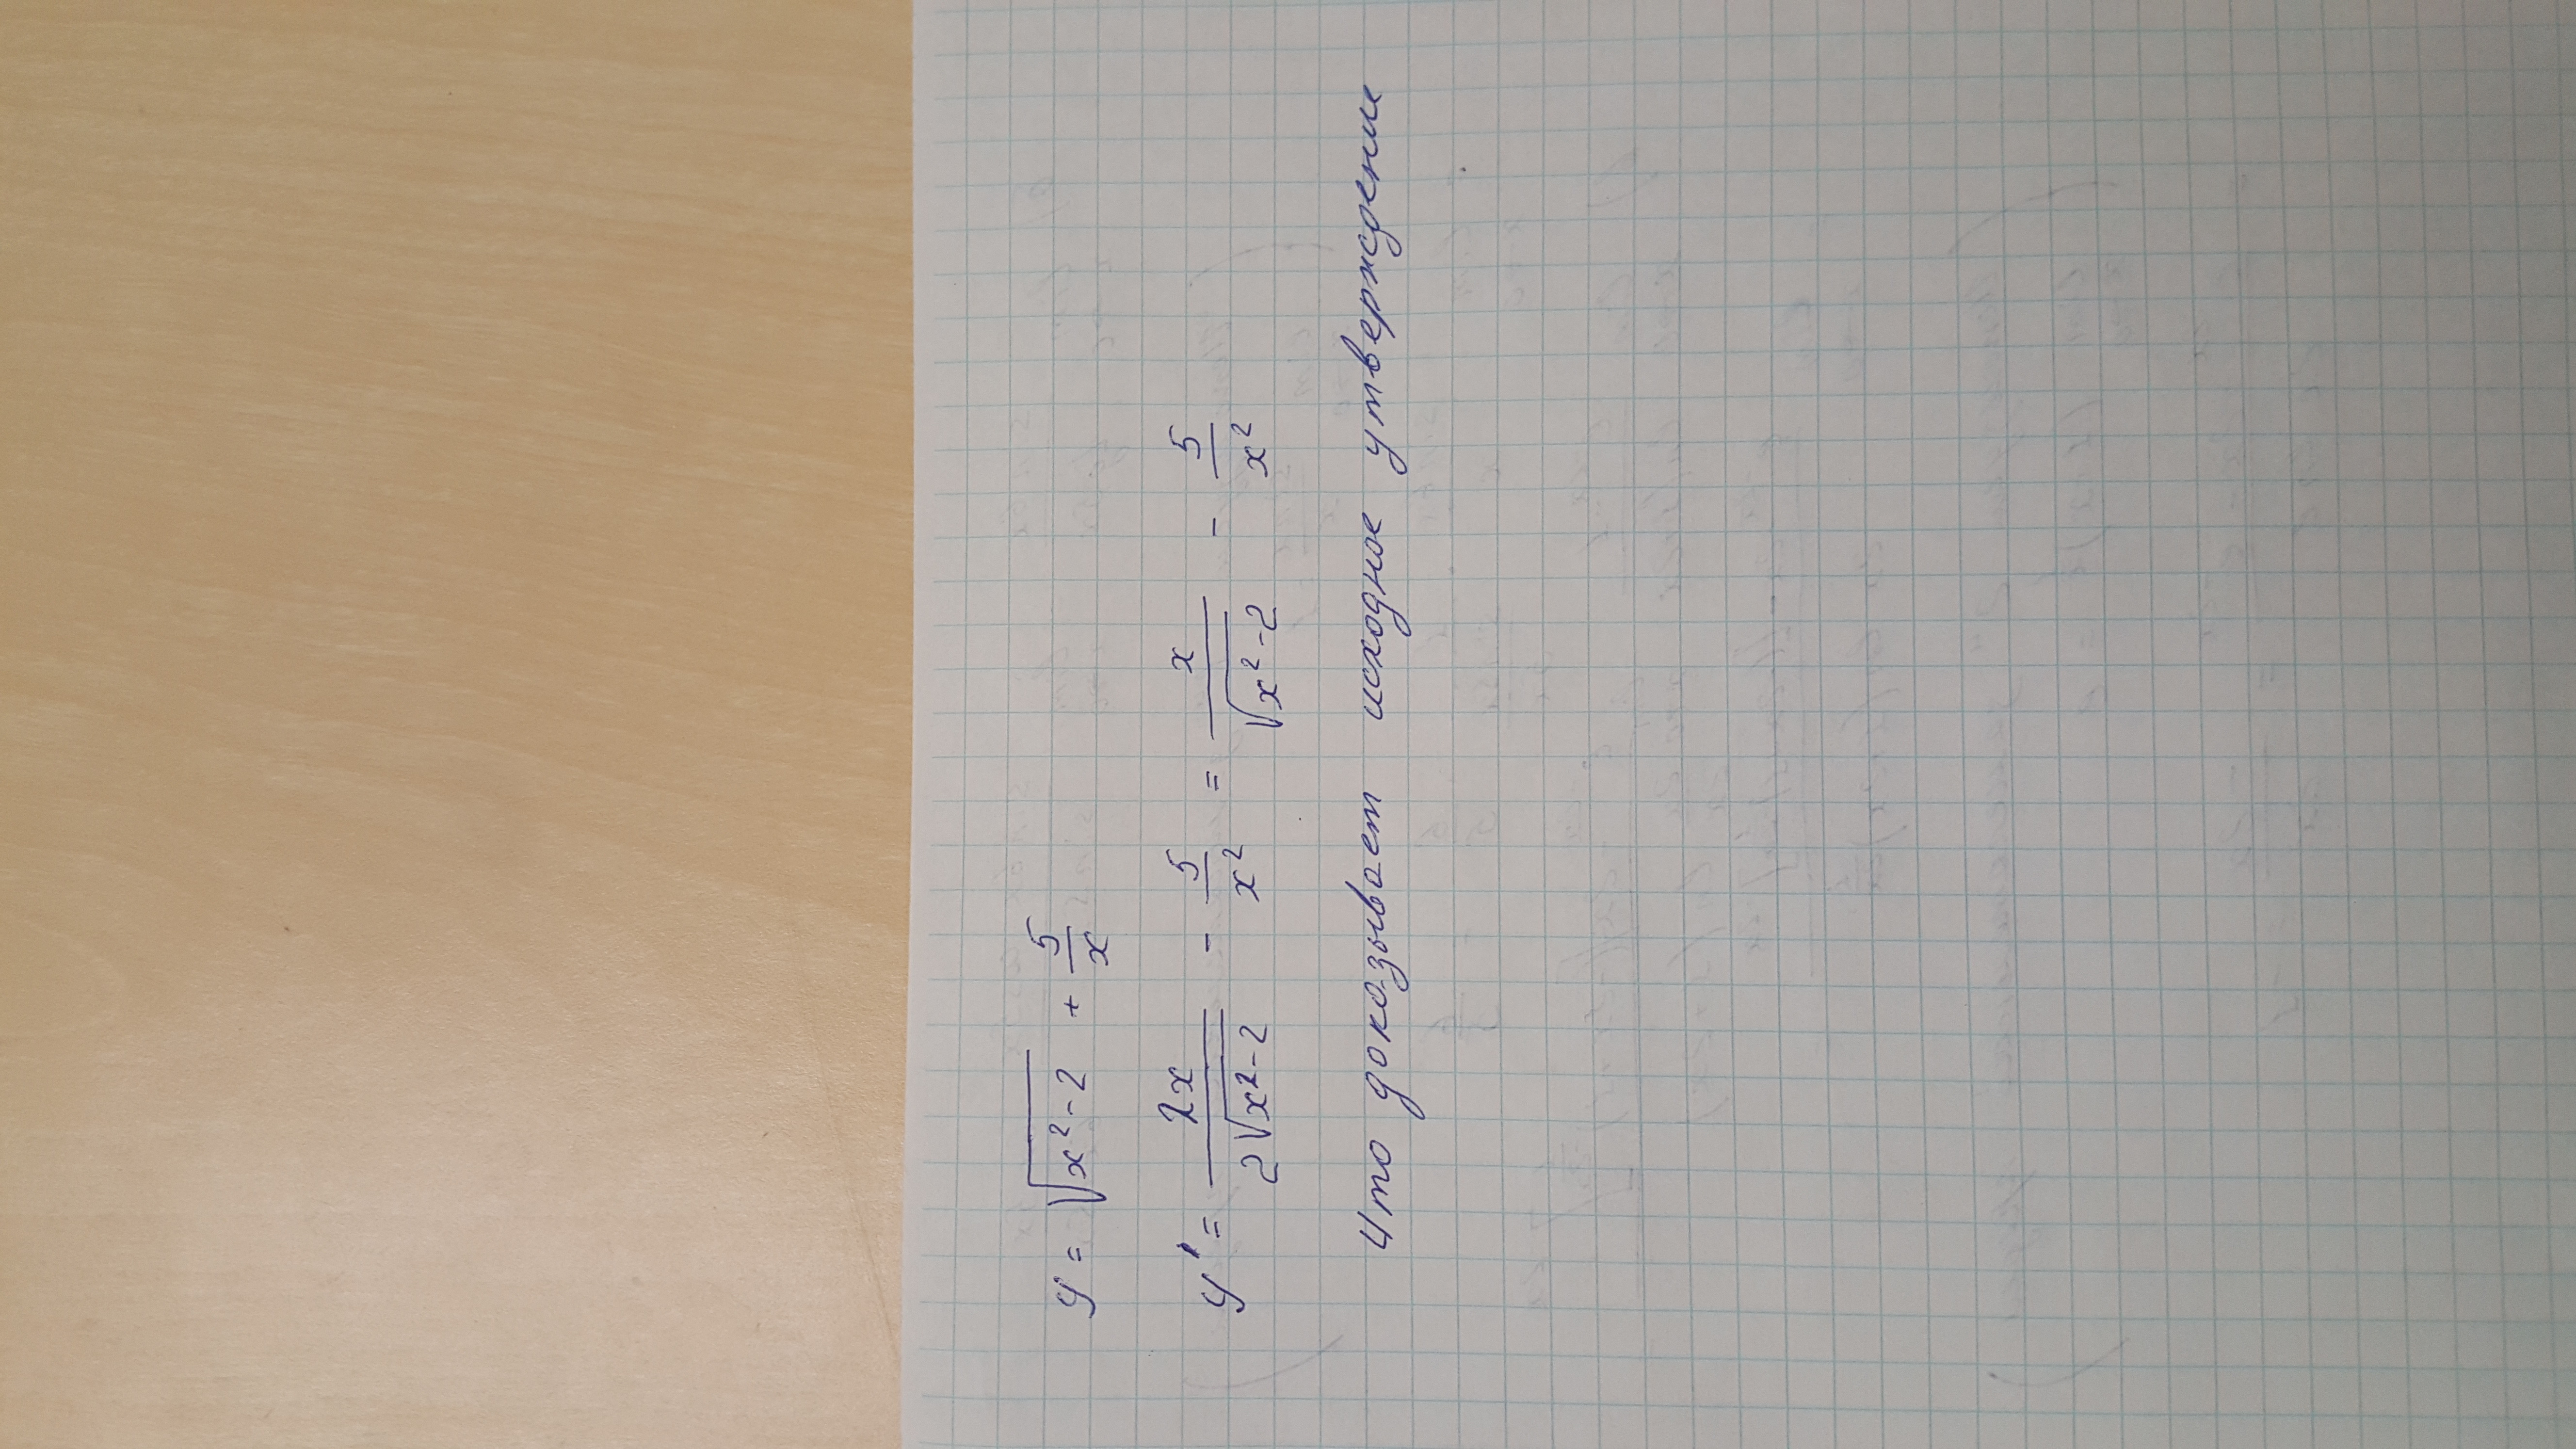 y = √(x² - 2) + 5/x
y' = 2x/(2√(x² - 2)) - 5/x² = x/√(x² - 2) - 5/x²
Что доказывает исходное утверждение